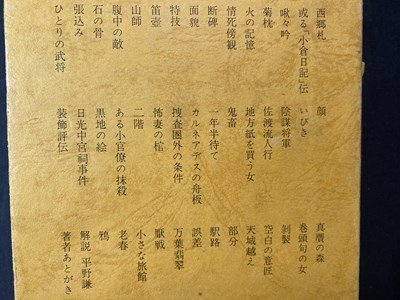 西郷札
或る「小倉日記」伝
啾々吟
菊枕
火の記憶
情死傍観
断碑
面貌
特技
笛壺
山師
腹中の敵
石の骨
張込み
ひとりの武将
顔
いびき
陰謀将軍
佐渡流人行
地方紙を買う女
鬼畜
一年半待て
カルネアデスの舟板
捜査圏外の条件
怖妻の棺
二階
ある小官僚の抹殺
黒地の絵
日光中宮祠事件
装飾評伝
真贋の森
巻頭句の女
剝製
空白の意匠
天城越え
部分
駅路
誤差
万葉翡翠
厭戦
小さな旅館
老春
鴉
解説 平野謙
著者あとがき